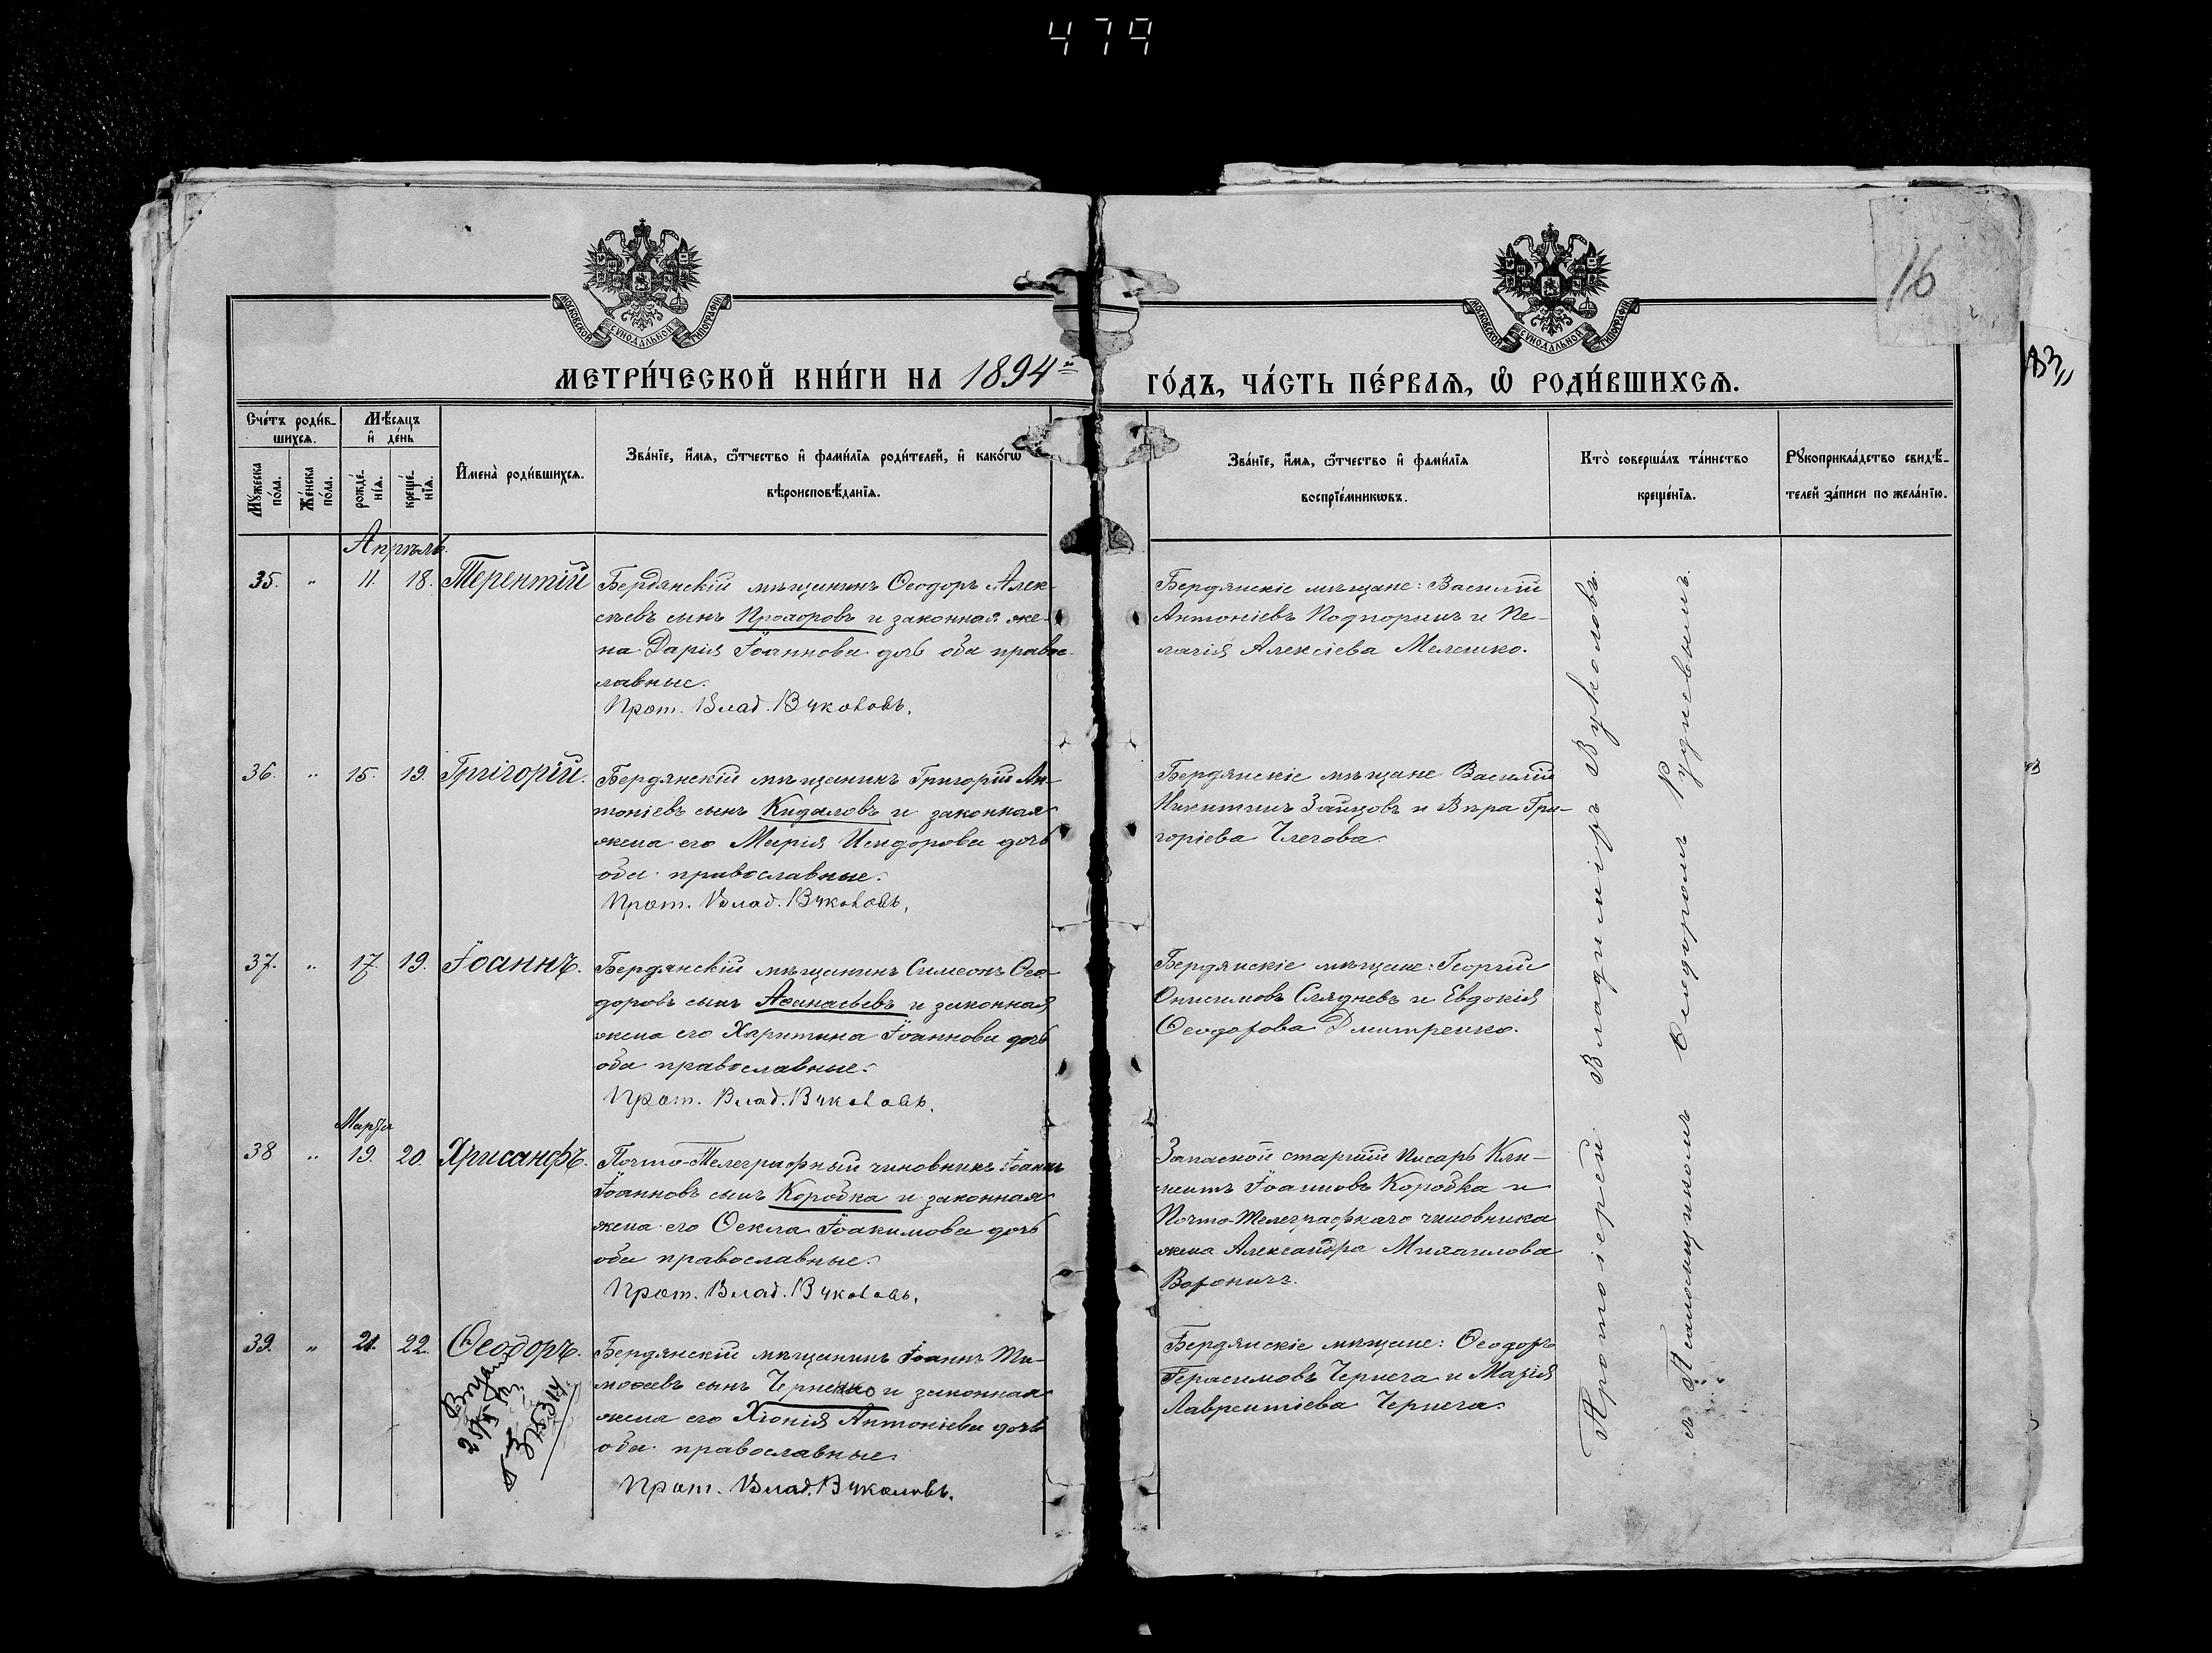 479
16
МОСКОВСКОЙ СѴНОДАЛЬНОЙ ТИПОГРАФІИ
МОСКОВСКОЙ СѴНОДАЛЬНОЙ ТИПОГРАФІИ
МЕТРИ́ЧЕСКОЙ КНИ́ГИ НА 1894й
ГО́ДЪ, ЧА́СТЬ ПЕ́РВАЯ, Ѽ РОДИ́ВШИХСЯ.
83
Сче́тъ роди́в-
шихся.
Мѣ́сяцъ
и҆ де́нь
Мꙋ́жеска
по́ла.
Же́нска
по́ла.
рожде́-
нїя.
креще́-
нїя.
И҆мена̀ роди́вшихся.
Зва́нїе, и҆́мя, ѻ҆́тчество и҆ фамѝлїя роди́телей, и҆ како́гѡ
вѣроисповѣ́данїя.
Зва́нїе, и҆́мя, ѻ҆́тчество и҆ фами́лїя
воспрїе́мникѡвъ.
Кто̀ соверша́лъ та́инство
креще́нїя.
Рꙋкоприкла́дство свидѣ́-
телей за́писи по жела́нїю.
Апрѣль.
35. „ 11. 18. Терентій
Бердянскій мѣщанинъ Ѳеодоръ Алек-
сѣевъ сынъ Прохоровъ и законная же-
на Дарія Іоаннова дочь оба правос-
лавные.
Прот. Влад. Вуколовъ.
Бердянскіе мѣщане: Василій
Антоніевъ Подпоринъ и Пе-
лагія Алексіева Мелешко.
36. „ 15. 19. Григорій.
Бердянскій мѣщанинъ Григорій Ан-
тоніевъ сынъ Кидаловъ и законная
жена его Марія Исидорова дочь
оба православные.
Прот. Влад. Вуколовъ.
Бердянскіе мѣщане Василій
Никитинъ Зайцовъ и Вѣра Гри-
горіева
37. „ 17. 19. Іоаннъ.
Бердянскій мѣщанинъ Симеонъ Ѳео-
доровъ сынъ Аѳанасьевъ и законная
жена его Харитина Іоаннова дочь
оба православные.
Прот. Влад. Вуколовъ.
Бердянскіе мѣщане: Георгій
Онисимовъ Слядневъ и Евдокія
Ѳеодорова Дмитренко.
Марта
38 „ 19. 20. Хрисанфъ.
Почто-Телеграфный чиновникъ Іоаннъ
Іоанновъ сынъ Коробка и законная
жена его Ѳекла Іоакимова дочь
оба православные.
Прот. Влад. Вуколовъ.
Запасной старшій писарь Кли-
ментъ Іоанновъ Коробка и
Почто-Телеграфнаго чиновника
жена Александра Михаилова
Вороничъ.
39. „ 21. 22. Ѳеодоръ.
Бердянскій мѣщанинъ Іоаннъ Ти-
моѳеевъ сынъ и законная
жена его Хіонія Антоніева дочь
оба православные.
Прот. Влад. Вуколовъ.
Бердянскіе мѣщане: Ѳеодоръ
Герасимовъ Чернега и Марія
Лаврентіева Чернега.
Протоіерей Владиміръ Вуколовъ
съ Псаломщикомъ Ѳеодоромъ Рудневымъ.